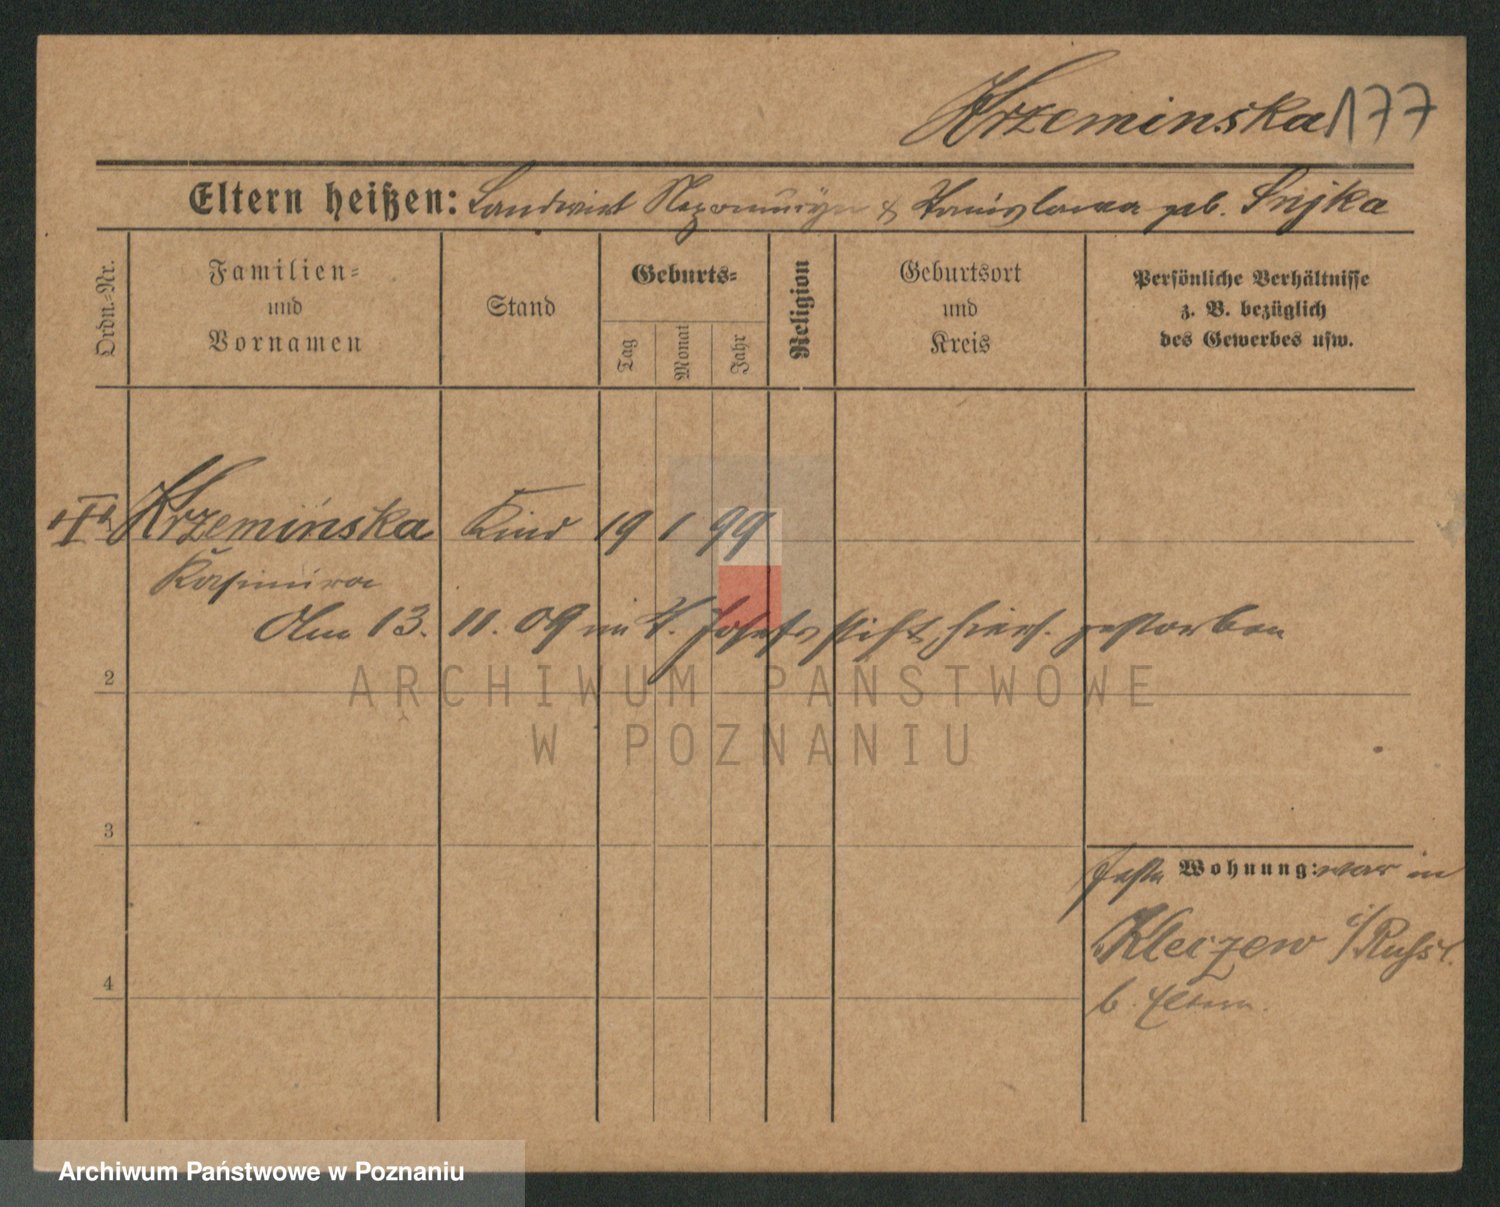 Krzeminska 177
Eltern heißen: Landwirt & Stanislawa geb.
Ordn.-Nr.
Familien-
und
Vornamen
Stand
Geburts-
Tag
Monat
Jahr
Religion
Geburtsort
und
Kreis
Persönliche Verhältnisse
z. B. bezüglich
des Gewerbes usw.
Krzemińska Kind 19 1 99
Kasimira
Am 13. 11. 09 im St. Josefsstift hiers. gestorben
2
3
4
Feste Wohnung: war in
Kleczew i/Russl.
b. Eltern.
ARCHIWUM PAŃSTWOWE
W POZNANIU
Archiwum Państwowe w Poznaniu